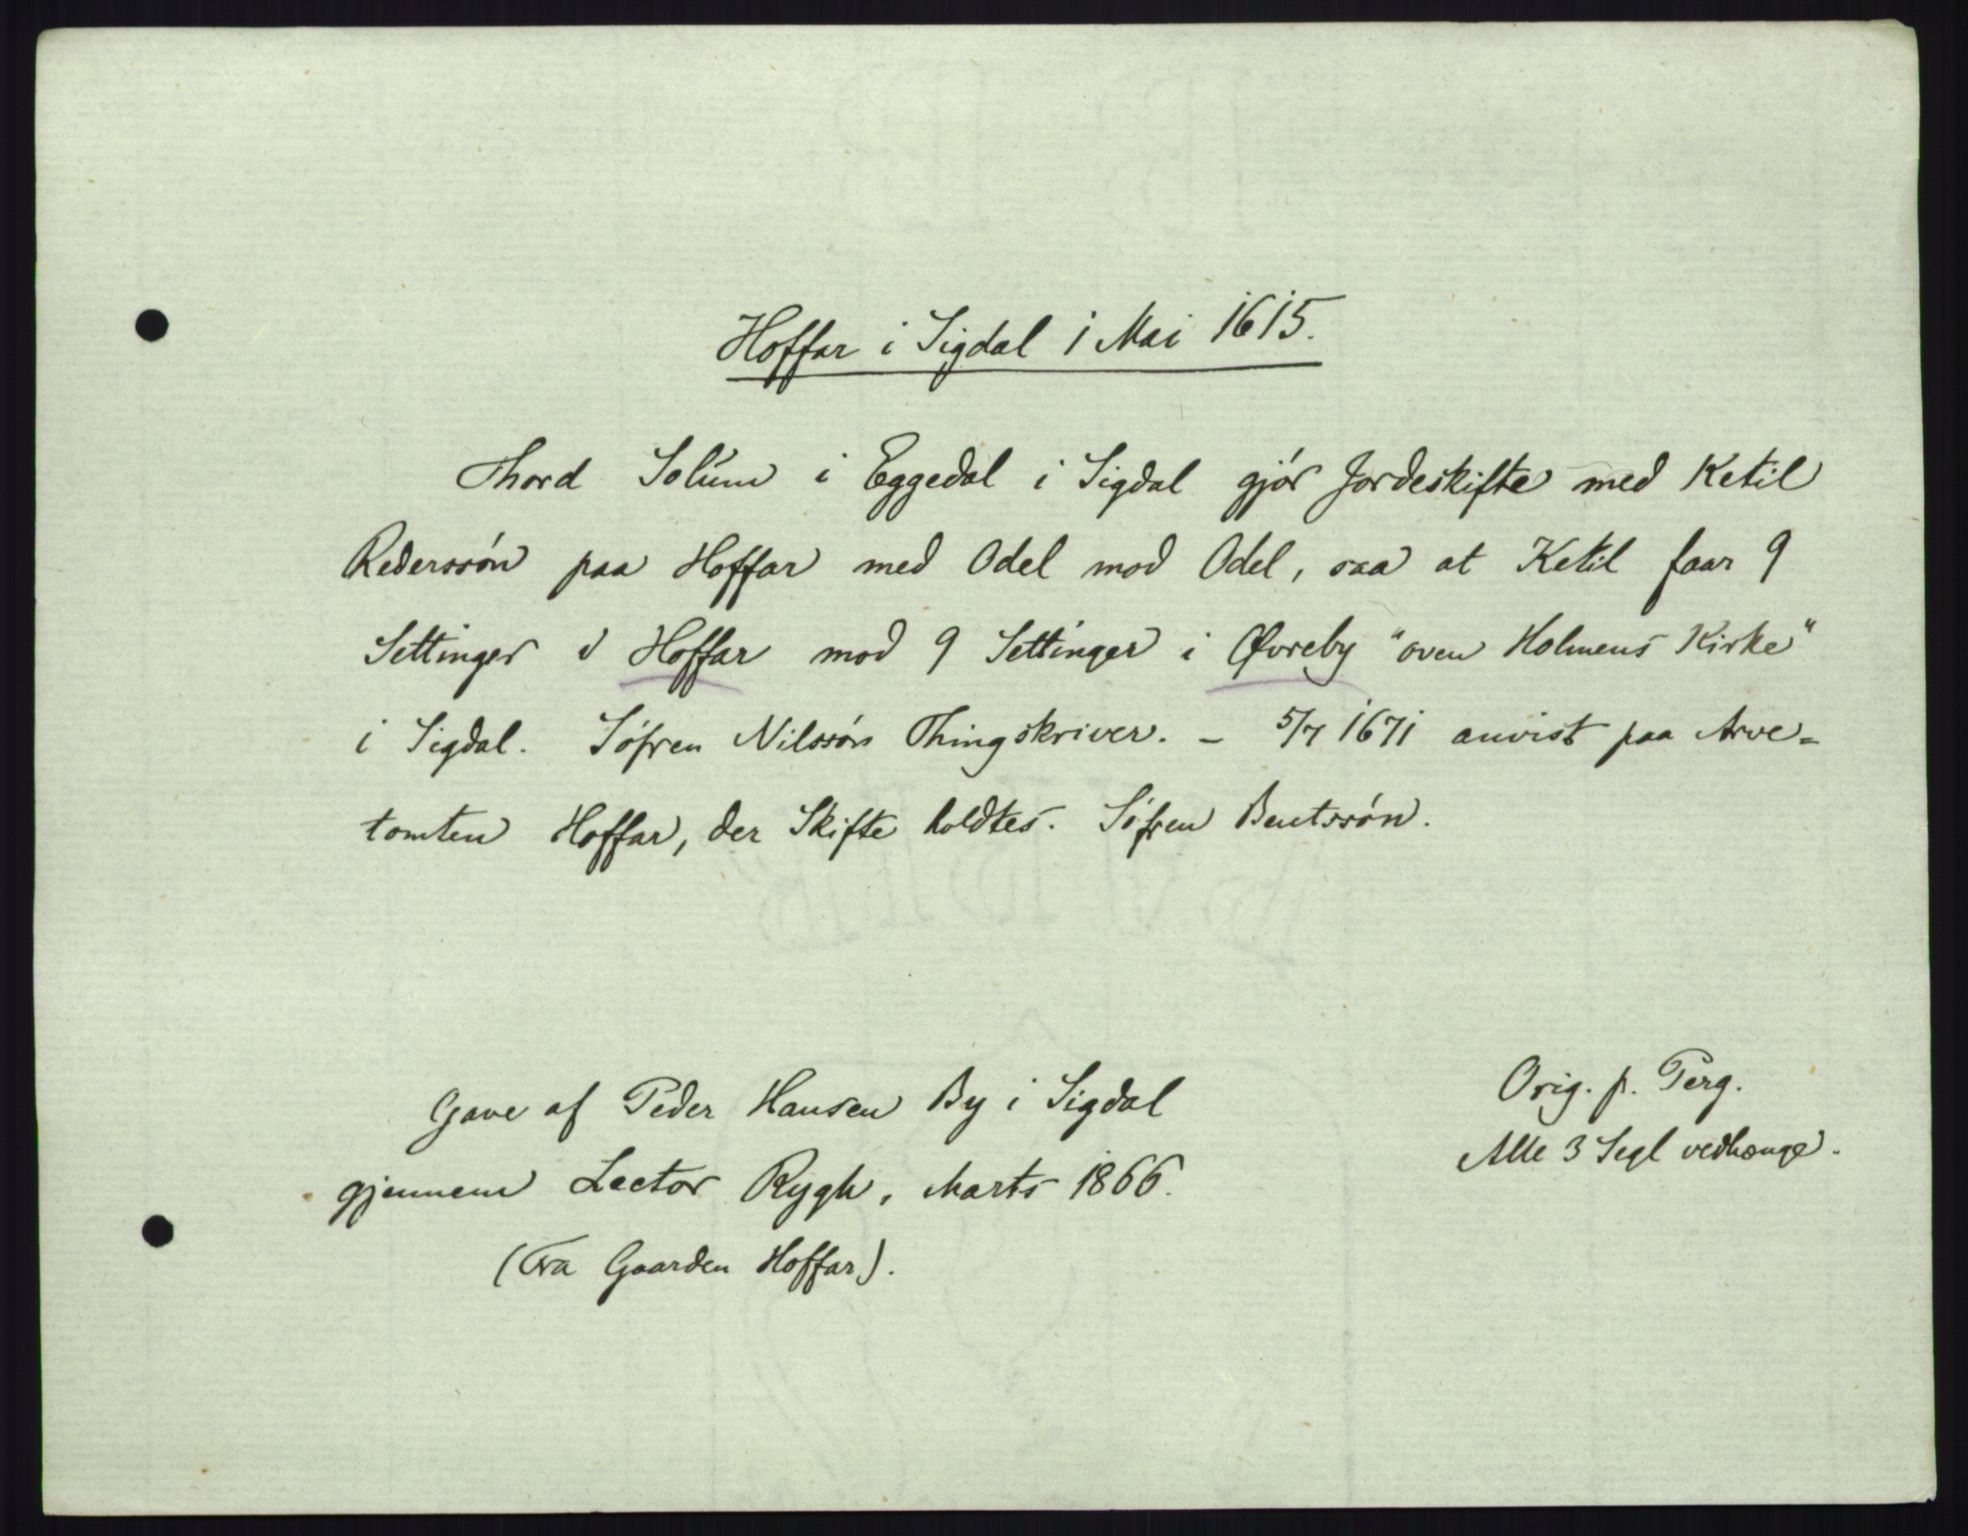 Hoffar i Sigdal 1 Mai 1615.
Thord Solum i Eggedal i Sigdal gjør Jordeskifte med Ketil
Rederssøn paa Hoffar med Odel mod Odel, saa at Ketil faar 9
Settinger i Hoffar mod 9 Settinger i Øvreby "oven Holmens Kirke"
i Sigdal. Søfren Nilssøn Thingskriver. – 5/7 1671 anvist paa Arve=
tomten Hoffar, der Skifte holdtes. Søfren Bentssøn.
Gave af Peder Hansen By i Sigdal
gjennem Lector Rygh, Marts 1866.
(Fra Gaarden Hoffar).
Orig. p. Perg.
Alle 3 Segl vedhænge.